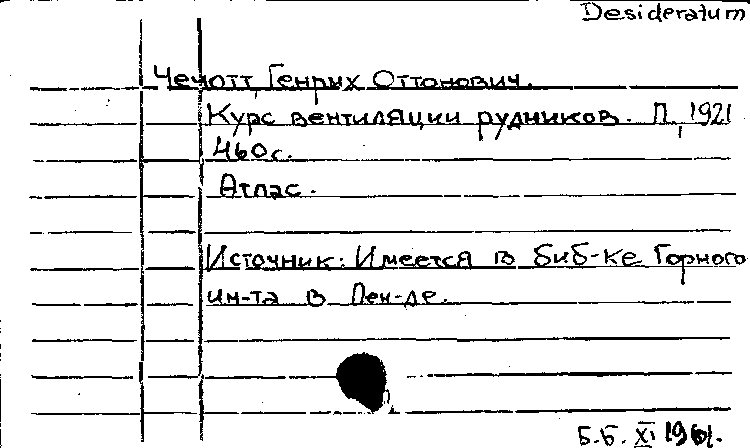 Desideratum
Чечотт, Генрих Оттонович.
Курс вентиляции рудников. П., 1921
460с.
Атлас.
Источник: Имеется в биб-ке Горного
ин-та в Лен-де.
Б.Б. XI 1961.